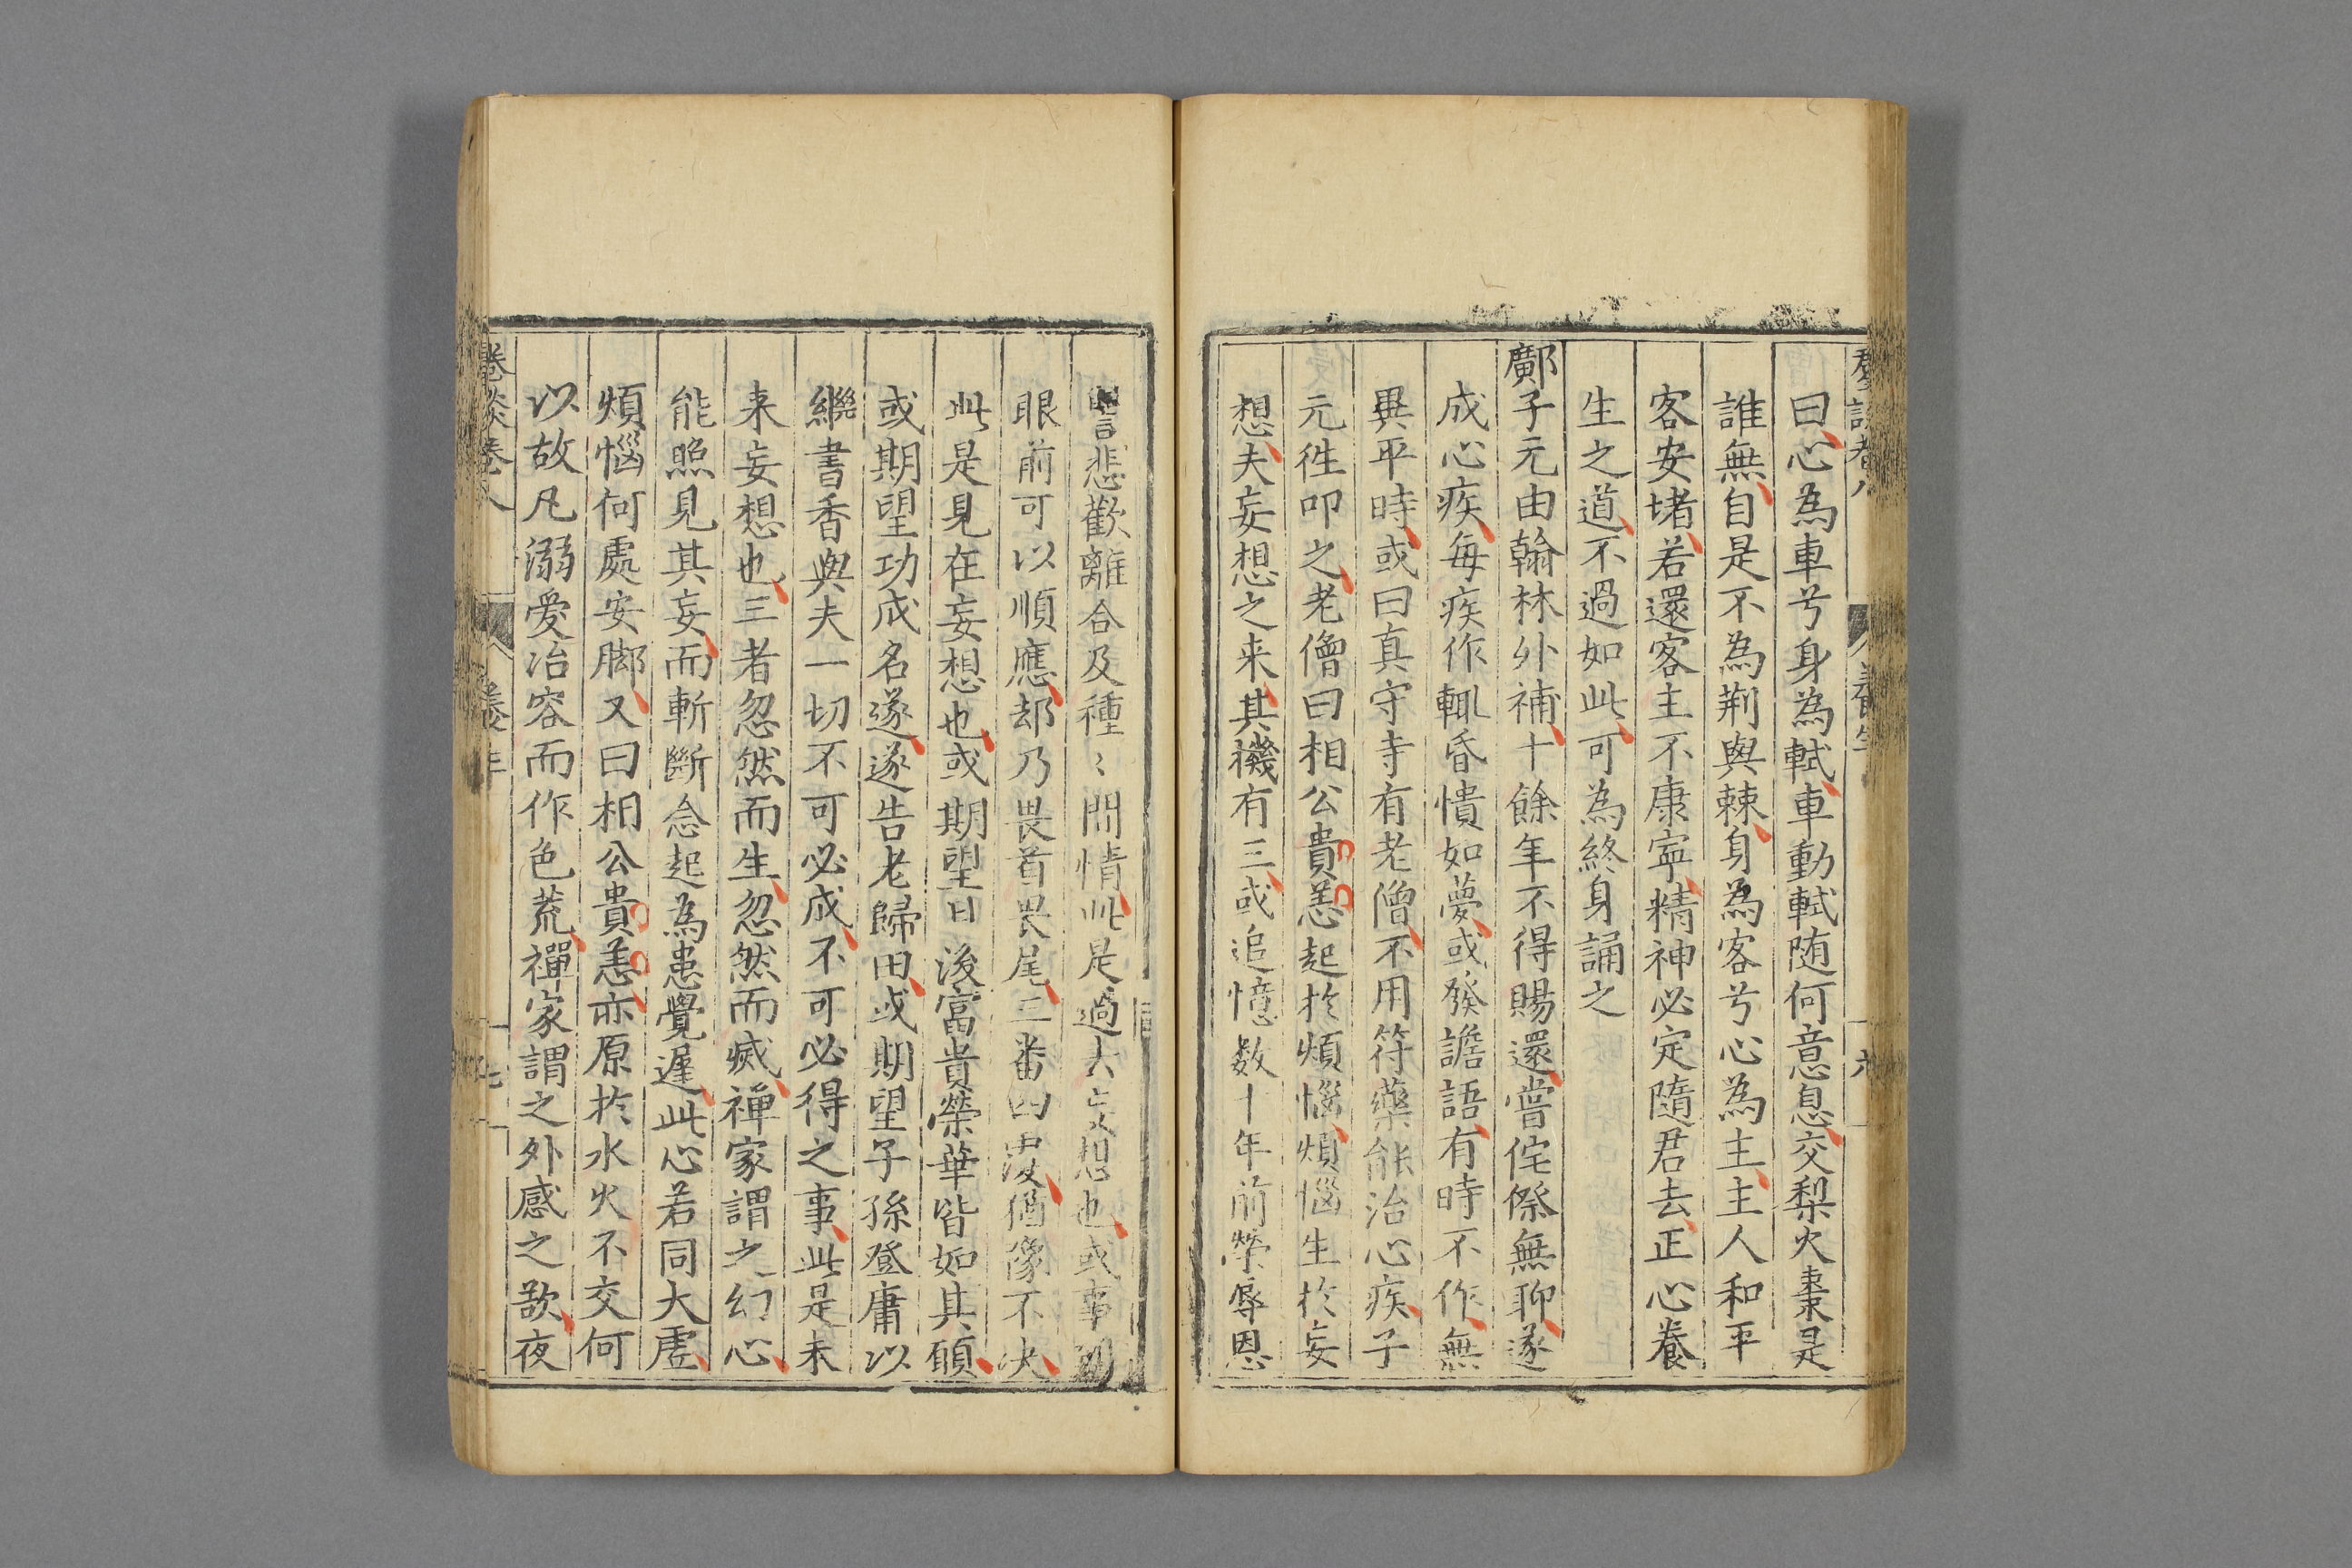 曰心為車兮身為軾車動軾随何意息交梨火棗是
誰無自是不為荆與棘身為客兮心為主主人和平
客安堵若還客主不康寜精神必定隨君去正心養
生之道不過如此可為終身誦之
鄺子元由翰林外補十餘年不得賜還嘗侘傺無聊遂
成心疾每疾作輒昏憒如夢或發譫語有時不作無
異平時或曰真守寺有老僧不用符藥能治心疾子
元徃叩之老僧曰相公貴恙起於煩惱煩惱生於妄
想夫妄想之来其機有三或追憶数十年前榮辱恩
讐悲歡離合及種〻閒情此是過去妄想也或事到
眼前可以順應却乃畏首畏尾三番四覆猶豫不决
此是見在妄想也或期望日後富貴榮華皆如其願
或期望功成名遂遂告老歸田或期望子孫登庸以
繼書香與夫一切不可必成不可必得之事此是未
来妄想也三者忽然而生忽然而滅禪家謂之幻心
能照見其妄而斬斷念起為患覺遲此心若同大虚
煩惱何處安脚又曰相公貴恙亦原於水火不交何
以故凡溺愛冶容而作色荒禪家謂之外感之欲夜
卷八
七